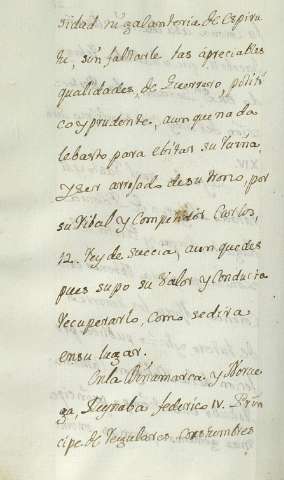 sidad ni galanteria de Espiri
tu, sin faltarle las apreciables
qualidades, de Guerrero, politi
co y prudente, aunque nada
le basto para ebitar su Ruina,
y ser arrojado de su trono, por
su Ribal y Competidor Carlos,
12. Rey de suecia, aunque des
pues supo su Valor y Conducta
recuperarlo, como se dira
en su lugar.
En la Dinamarca y Norue
ga, Reynaba federico IV. Prin
cipe de Regulares Costumbres